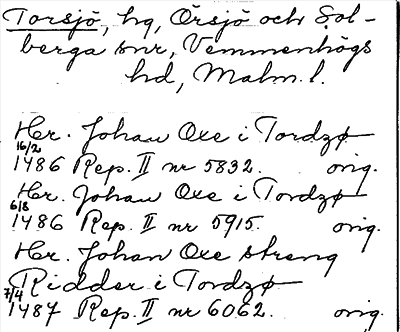 Torsjö, hg, Örsjö och Sol-
berga snr, Vemmenhögs
hd, Malm. l.
Hr. Johan Oxe i Tordzø
16/2 1486 Rep. II nr 5832. orig.
Hr. Johan Oxe i Tordzø
6/8 1486 Rep. II nr 5915. orig.
Hr. Johan Oxe streng
Ridder i Tordzø
7/4 1487 Rep. II nr 6062. orig.